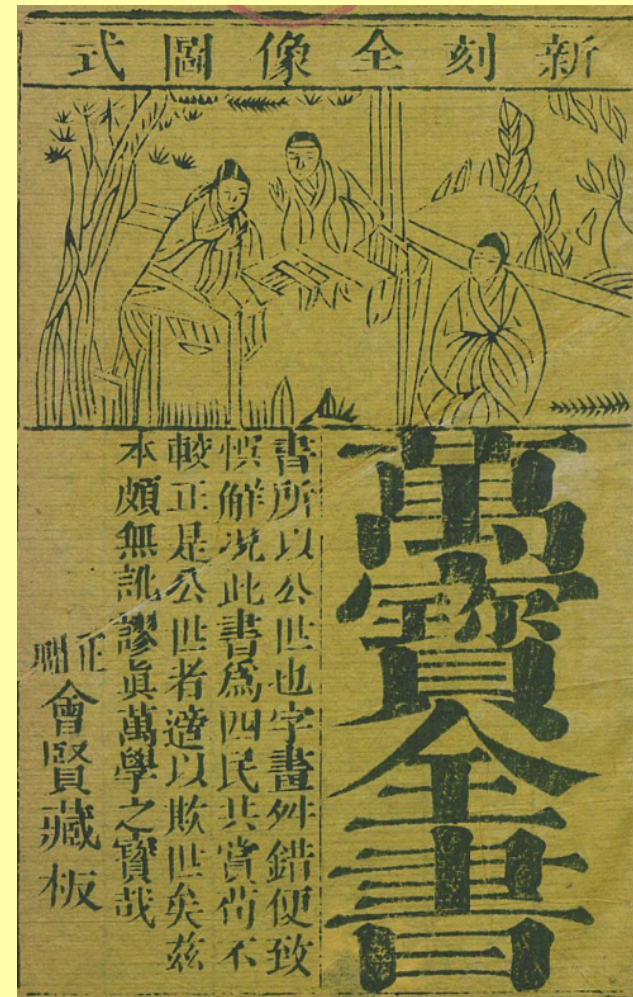 新刻全像圖式
萬寳全書
書所以公世也字畫舛錯便致
悞解况此書爲四民共賞苟不
較正是公世者適以欺世矣兹
本頗無訛謬眞萬學之寳哉
正
會賢藏板